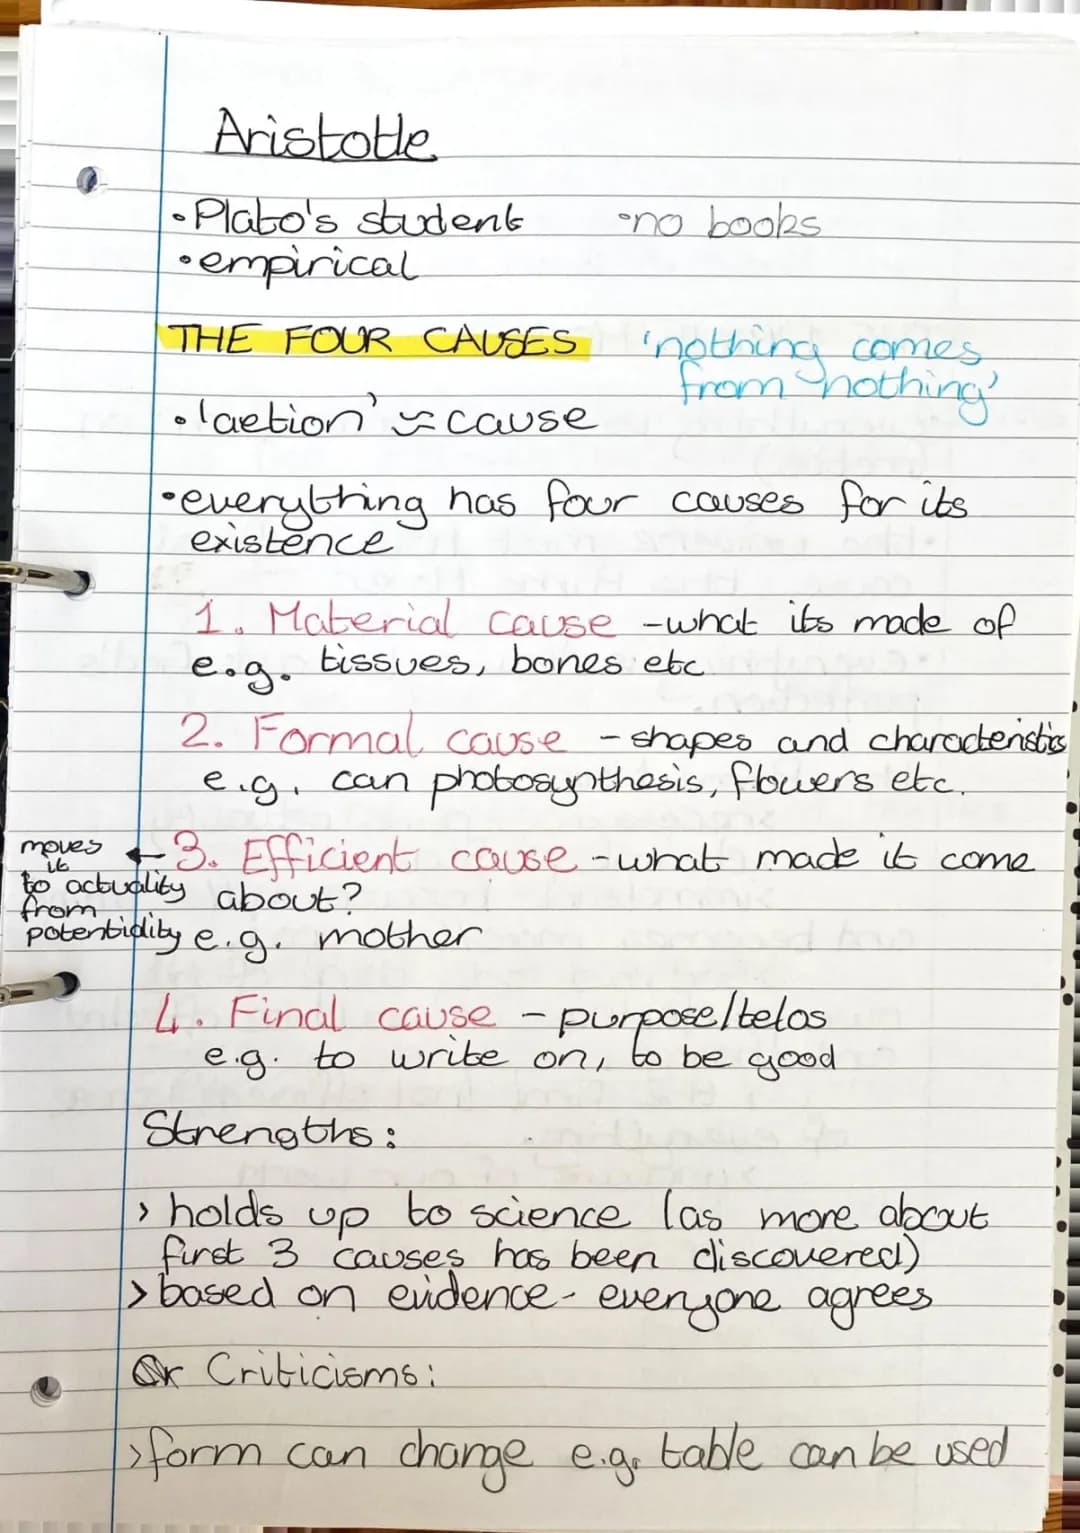 Aristotle
•Plato's student •no books
•empirical
THE FOUR CAUSES 'nothing comes
from nothing'
•'aetion' ≈ cause
•everything has four causes for its
existence
1. Material cause -what its made of
e.g. tissues, bones etc
2. Formal cause - shapes and characteristics
e.g. can photosynthesis, flowers etc.
moves
it
to actuality
from
potentiality
←3. Efficient cause -what made it come
about?
e.g. mother
4. Final cause - purpose/telos
e.g. to write on, to be good
Strengths:
> holds up to science (as more about
first 3 causes has been discovered)
> based on evidence - everyone agrees
Criticisms:
>form can change e.g. table can be used